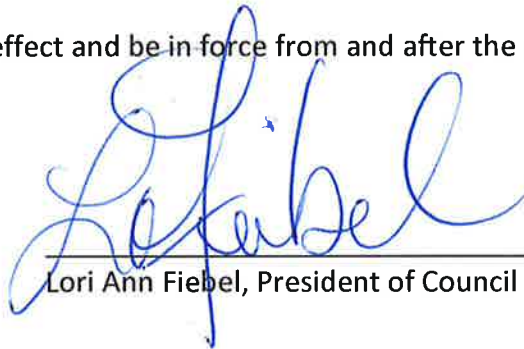 effect and be in force from and after the
Lori Ann Fiebel, President of Council